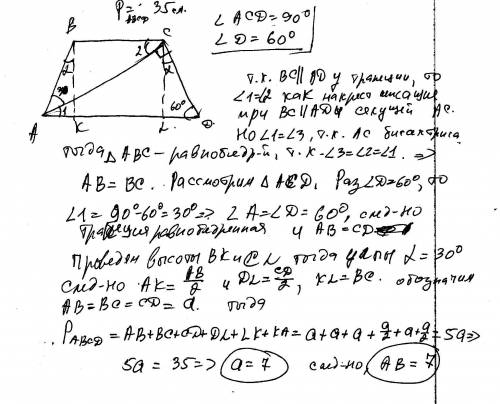 P_ABCD = 35 см.
∠ ACD = 90°
∠ D = 60°
B C
2 α
α
3 1 60°
A K L D
т.к. BC∥AD у трапеции, то
∠1=∠2 как накрест лежащие
при BC∥AD и секущей AC.
Но ∠1=∠3, т.к. AC биссектриса
тогда △ABC – равнобедр-й, т.к. ∠3=∠2=∠1. ⇒
AB = BC. Рассмотрим △ACD. Раз ∠D=60°, то
∠1 = 90°-60°=30° ⇒ ∠A=∠D=60°, след-но
трапеция равнобедренная и AB=CD
Проведём высоты BK и CL тогда углы α = 30°
след-но AK = AB/2 и DL = CD/2, KL = BC. обозначим
AB = BC = CD = a. тогда
P_ABCD = AB+BC+CD+DL+LK+KA = a+a+a+a/2+a+a/2 = 5a ⇒
5a = 35 ⇒ a = 7 след-но, AB = 7